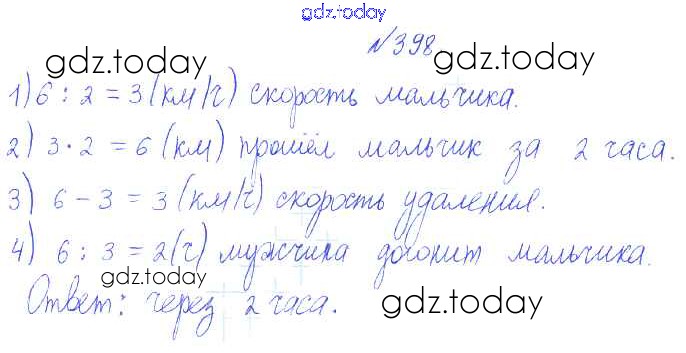 gdz.today
№398
gdz.today gdz.today
1) 6 : 2 = 3 (км/ч) скорость мальчика.
2) 3 · 2 = 6 (км) прошёл мальчик за 2 часа.
3) 6 - 3 = 3 (км/ч) скорость удаления.
4) 6 : 3 = 2 (ч) мужчина догонит мальчика.
gdz.today
Ответ: через 2 часа.
gdz.today